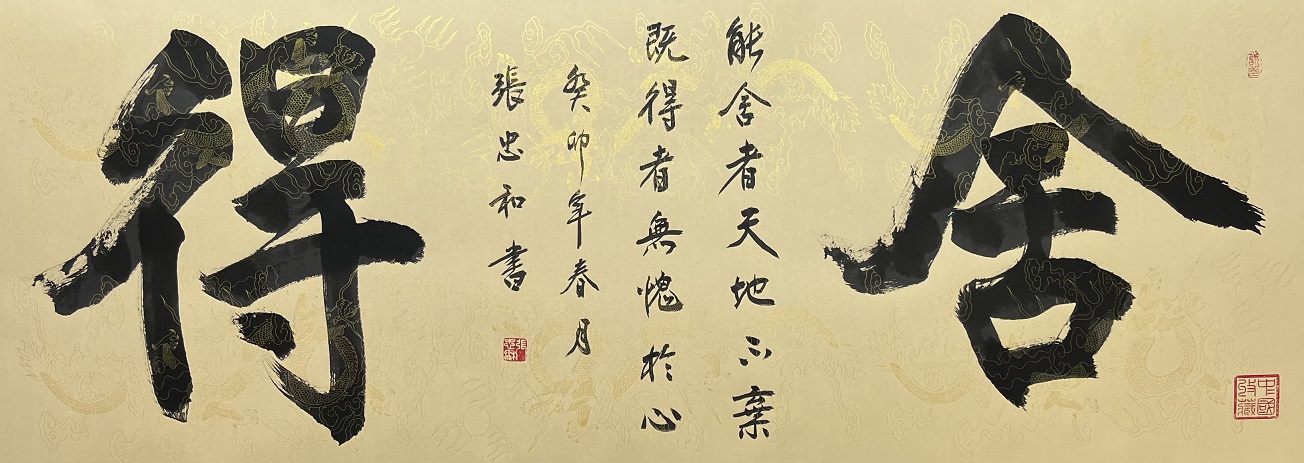 舍得
能舍者天地不棄
既得者無愧於心
癸卯年春月
張忠和書
中國收藏